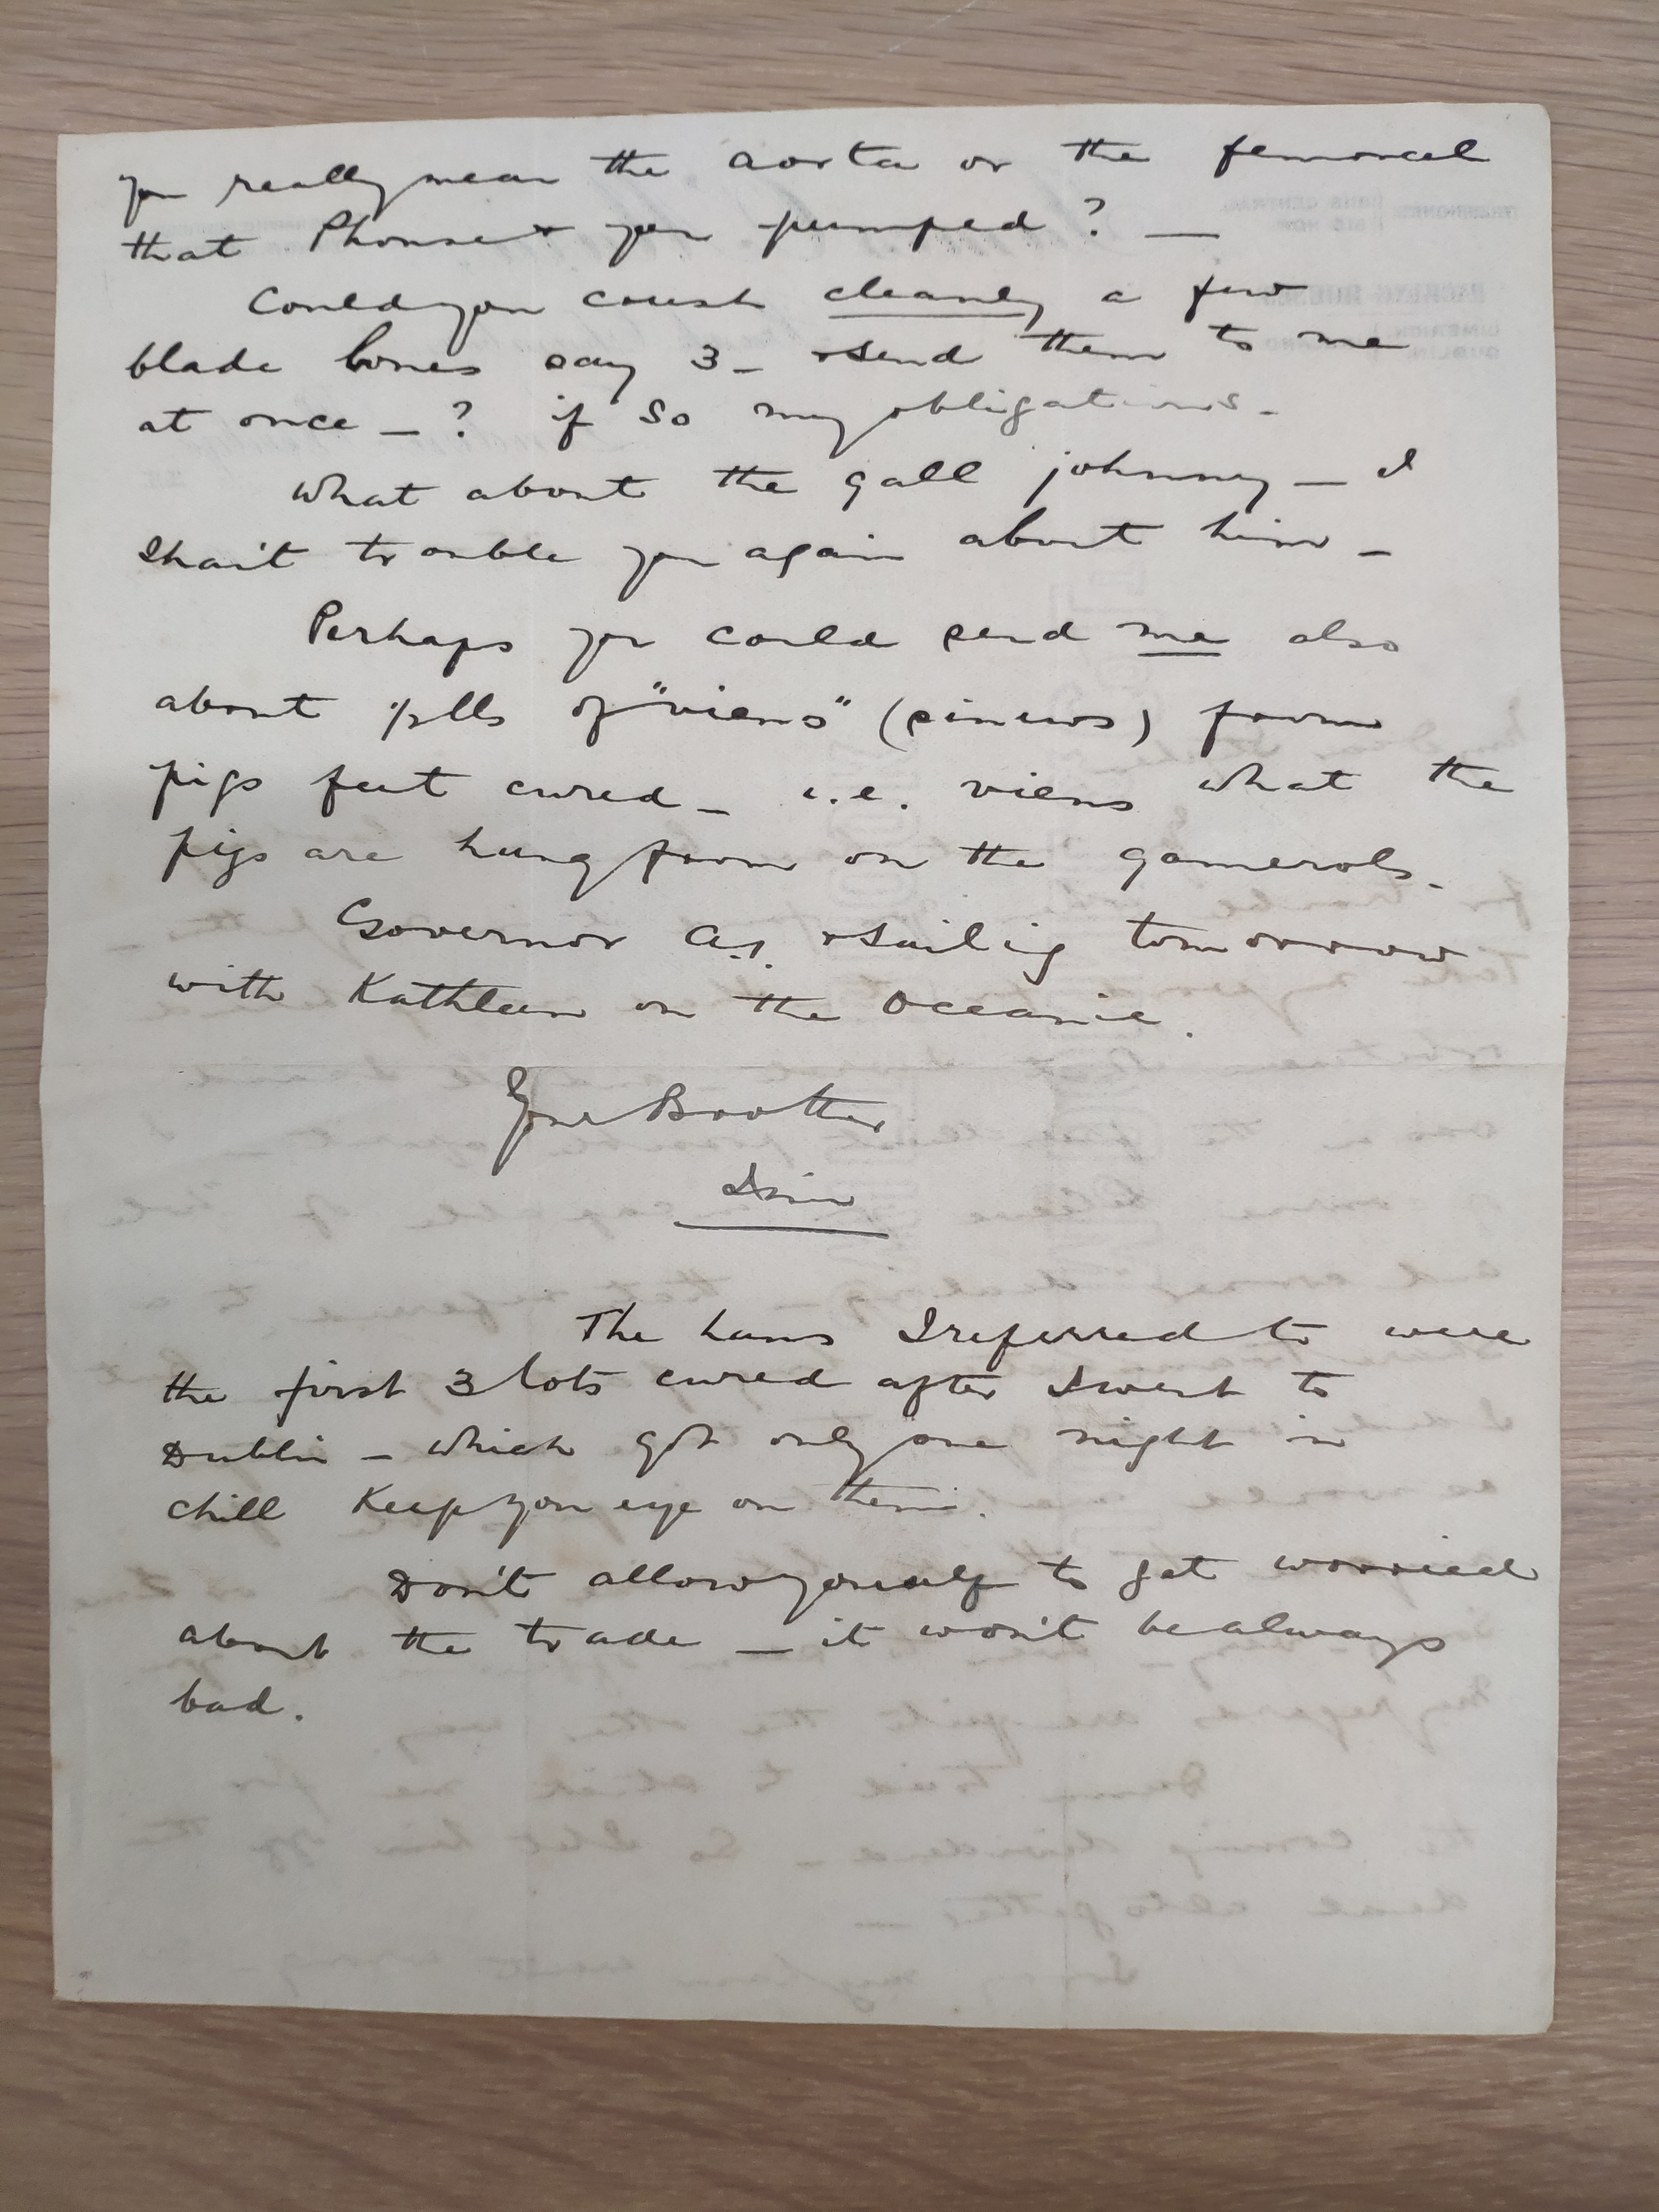 you really mean the aorta or the femoral
that Phonse & you pumped? —
Could you crush cleanly a few
blade bones say 3 – & send them to me
at once – ? if so my obligations –
What about the gall johnny – I
shan't trouble you again about him –
Perhaps you could send me also
about lbs of "viens" (sinews) from
pigs feet cured – i.e. viens what the
pigs are hung from on the gamerols.
Governor A.1. & sailing tomorrow
with Kathleen on the Oceanic.
Your Brother
The hams I referred to were
the first 3 lots cured after I went to
Dublin – which got only one night in
chill Keep your eye on them.
Don't allow yourself to get worried
about the trade – it won't be always
bad.